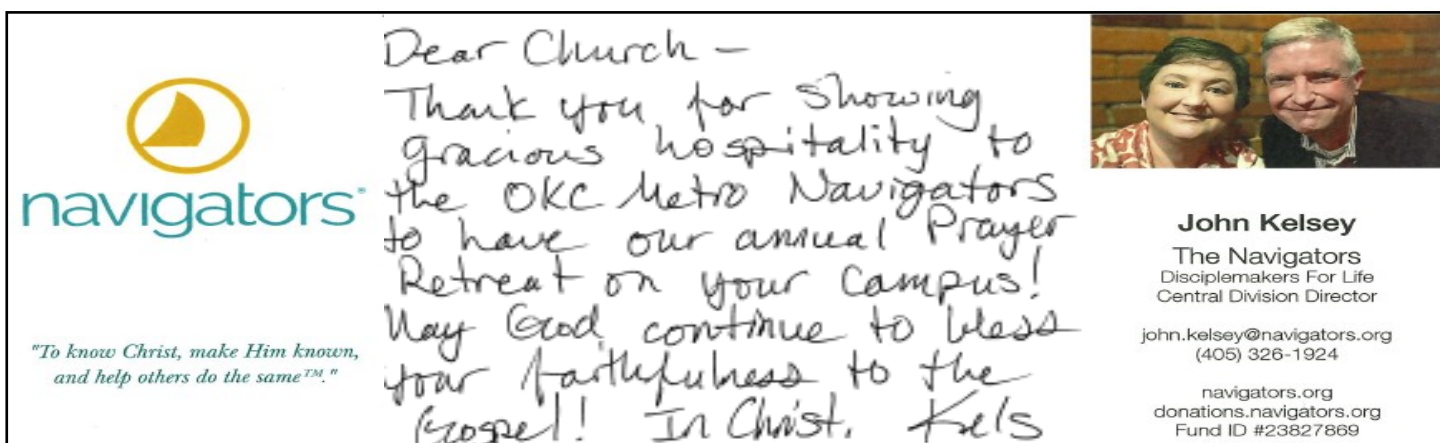 navigators®
"To know Christ, make Him known,
and help others do the same™."
Dear Church –
Thank you for showing
gracious hospitality to
the OKC Metro Navigators
to have our annual Prayer
Retreat on your campus!
May God continue to bless
your faithfulness to the
Gospel! In Christ, Kels
John Kelsey
The Navigators
Disciplemakers For Life
Central Division Director
john.kelsey@navigators.org
(405) 326-1924
navigators.org
donations.navigators.org
Fund ID #23827869